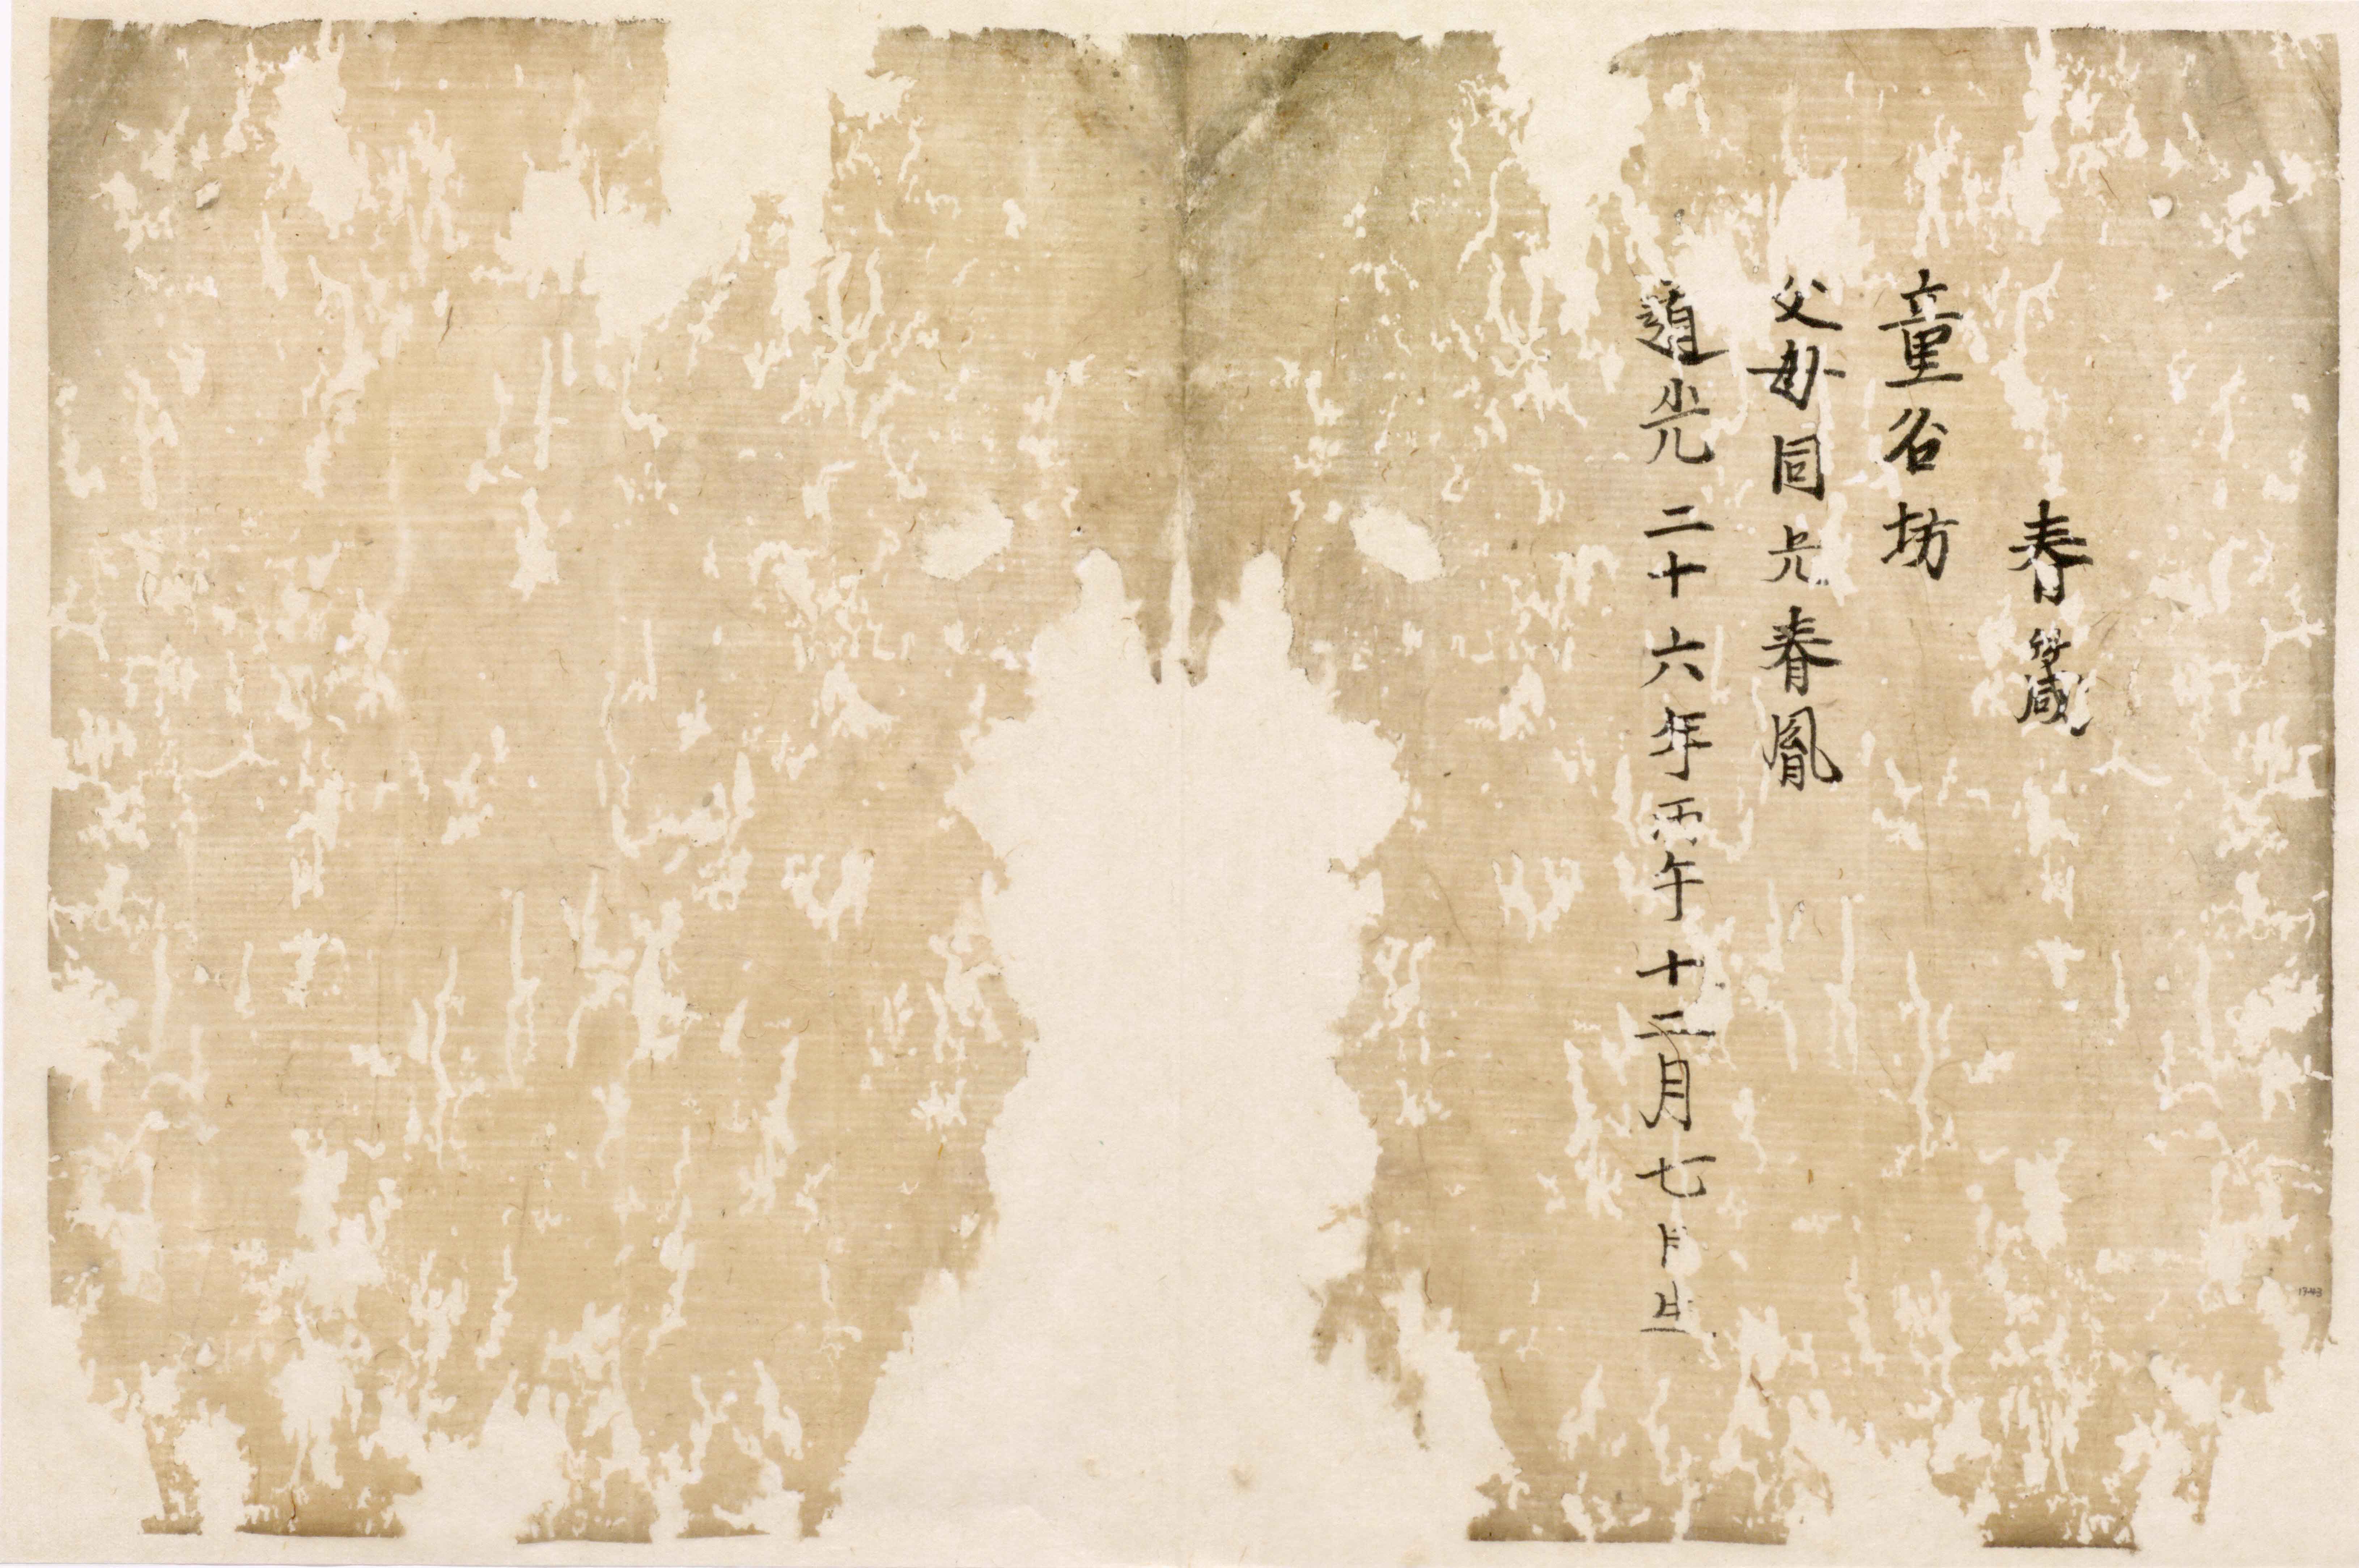 童谷坊
父母同光春鳳
道光二十六年丙午十二月七日生
1743